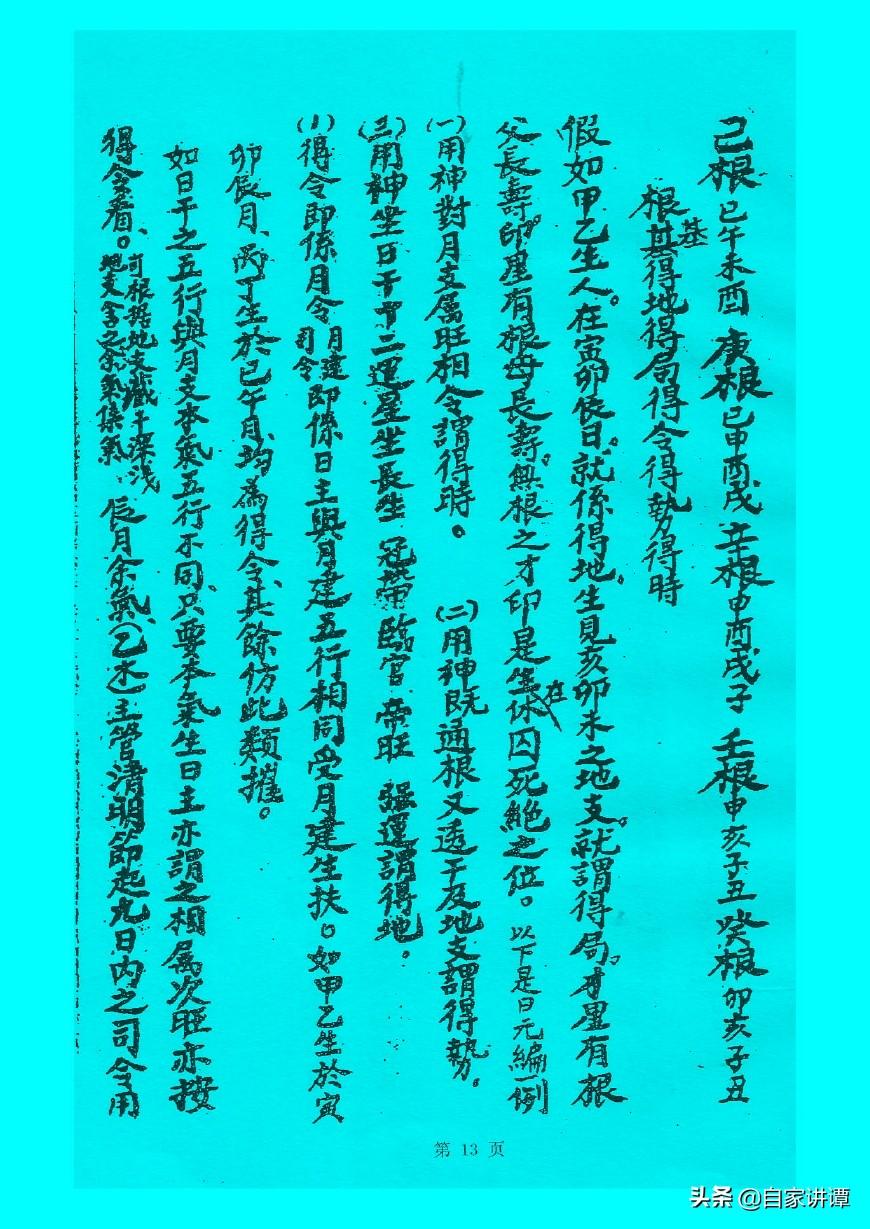 己根巳午未酉 庚根巳申酉戌 辛根申酉戌子 壬根申亥子丑 癸根卯亥子丑
根基得地得局得令得勢得時
假如甲乙生人。在寅卯辰日。就係得地。生見亥卯未之地支。就謂得局。才星有根
父長壽。印星有根母長壽。無根之才印是坐在休囚死絕之位。以下是日元編一例
(一)用神對月支屬旺相令謂得時。 (二)用神既通根又透干及地支謂得勢。
(三)用神坐日干十二運星坐長生 冠帶 臨官 帝旺 强運謂得地。
(1)得令即係月令月建司令即係日主與月建五行相同受月建生扶。如甲乙生於寅
卯辰月、丙丁生於巳午月、均為得令、其餘仿此類推。
如日干之五行與月支本氣五行不同、只要本氣生日主亦謂之相屬次旺亦按
得令看。、可根据地支藏干深浅地支含之余氣係氣 辰月余氣、(乙木)主管清明節起九日内之司令用
第 13 页
头条 @自家讲谭